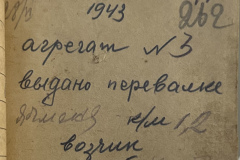 1943 262
агрегат № 3
выдано перевалке
ячменя к/м 1,2
возчик